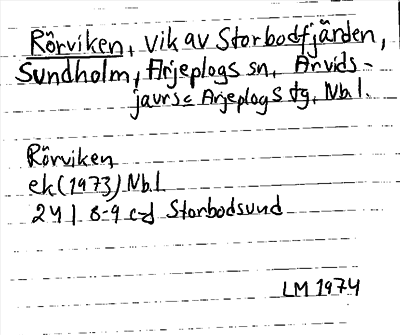 Rörviken, vik av Storbodfjärden,
Sundholm, Arjeplogs sn, Arvids-
jaurs c Arjeplogs tg, Nbl.
Rörviken
ek (1973) Nbl
24 I 8-9 c-d Storbodsund
LM 1974